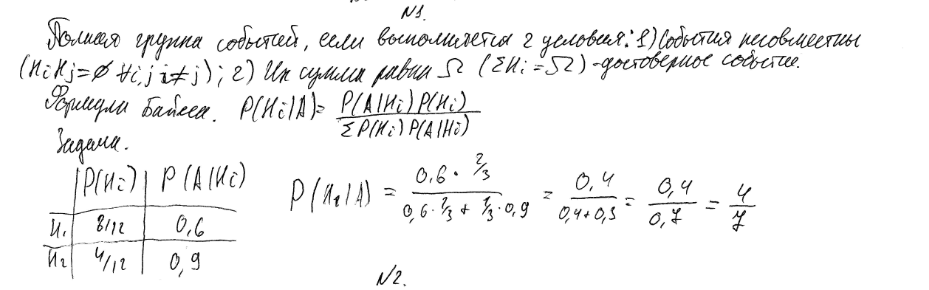 №1.
Полная группа событий, если выполняется 2 условия: 1) События несовместны
(HiHj=∅ ∀i,j i≠j); 2) Их сумма равна Ω (ΣHi=Ω) - достоверное событие.
Формула Байеса. P(Hi|A)= P(A|Hi)P(Hi) / ΣP(Hi)P(A|Hi)
Задача.
P(Hi) P(A|Hi)
H₁ 8/12 0,6
H₂ 4/12 0,9
P(H₁|A) = 0,6·2/3 / 0,6·2/3 + 1/3·0,9 = 0,4 / 0,4+0,3 = 0,4 / 0,7 = 4/7
№2.